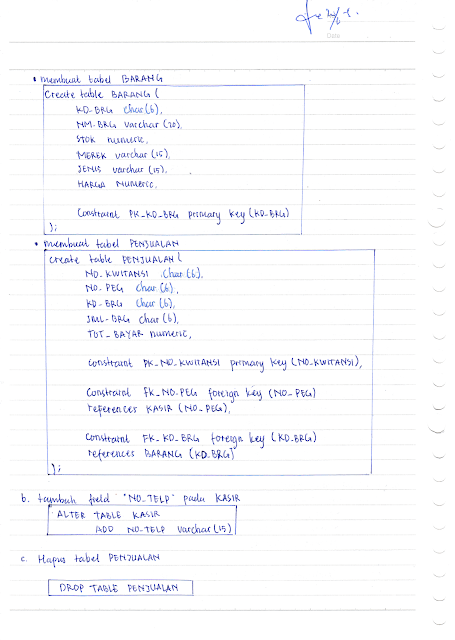 Date
• membuat tabel BARANG
Create table BARANG (
KD_BRG char(6),
NM_BRG varchar (20),
STOK numeric,
MEREK varchar (15),
JENIS varchar (15),
HARGA NUMERIC,
Constraint PK_KD_BRG primary key (KD_BRG)
);
• membuat tabel PENJUALAN
create table PENJUALAN (
NO_KWITANSI char (6),
NO_PEG char (6),
KD_BRG char (6),
JML_BRG char (6),
TOT_BAYAR numeric,
Constraint PK_NO_KWITANSI primary key (NO_KWITANSI),
Constraint FK_NO_PEG foreign key (NO_PEG)
references KASIR (NO_PEG),
Constraint FK_KD_BRG foreign key (KD_BRG)
references BARANG (KD_BRG)
);
b. tambah field "NO_TELP" pada KASIR
ALTER TABLE KASIR
ADD NO_TELP varchar (15)
c. Hapus tabel PENJUALAN
DROP TABLE PENJUALAN